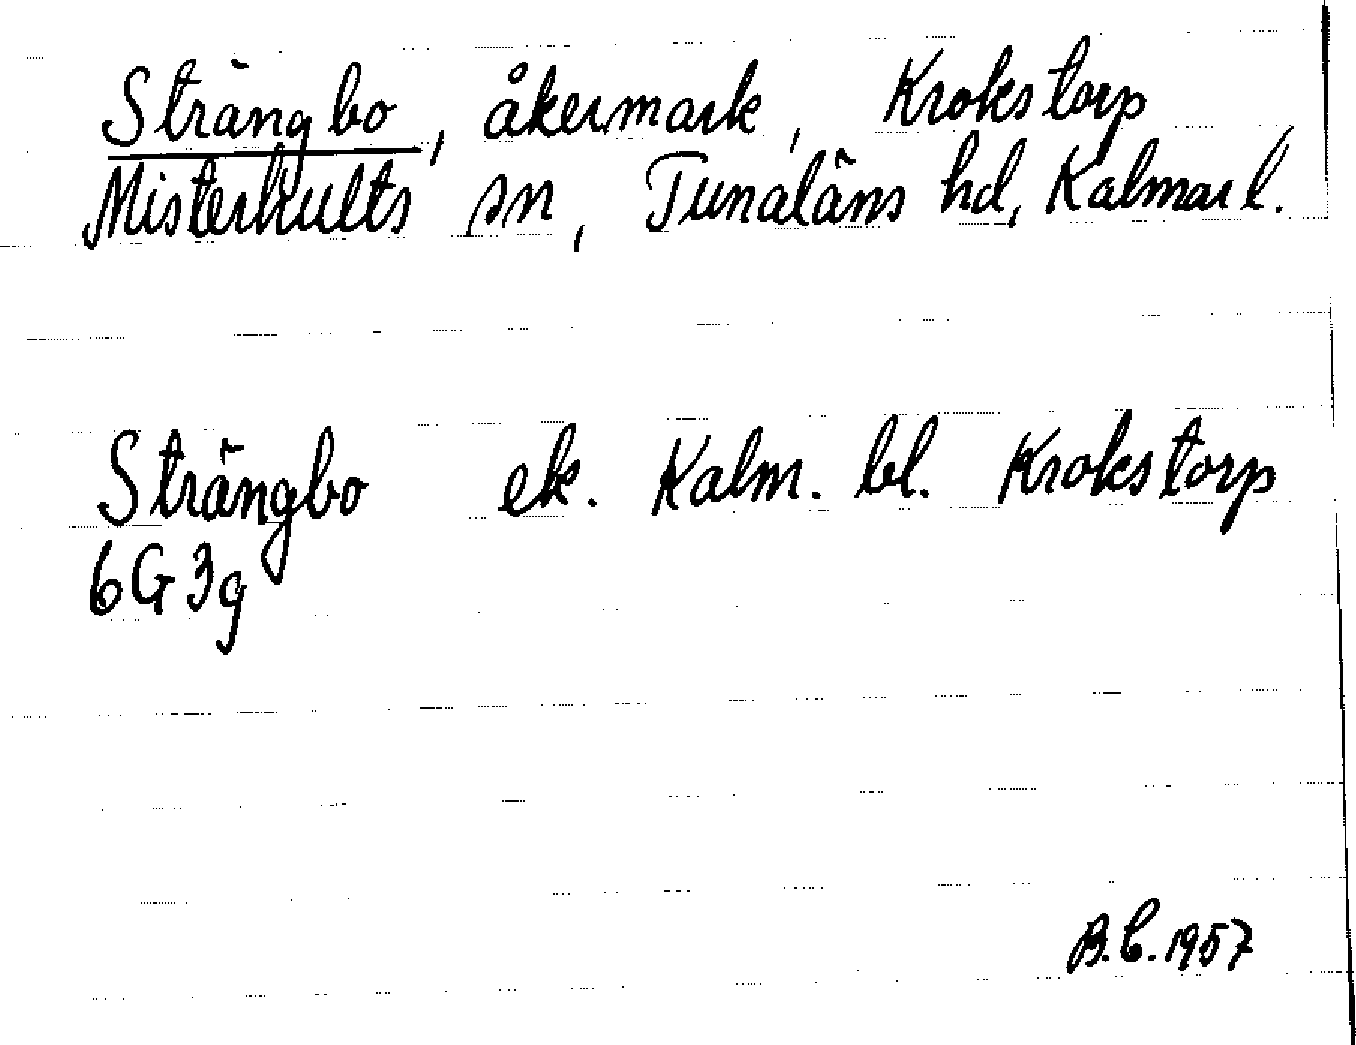 Strängbo, åkermark, Krokstorp
Misterhults sn, Tunaläns hd, Kalmar l.
Strängbo ek. Kalm. bl. Krokstorp
6G3g
B.C.1957